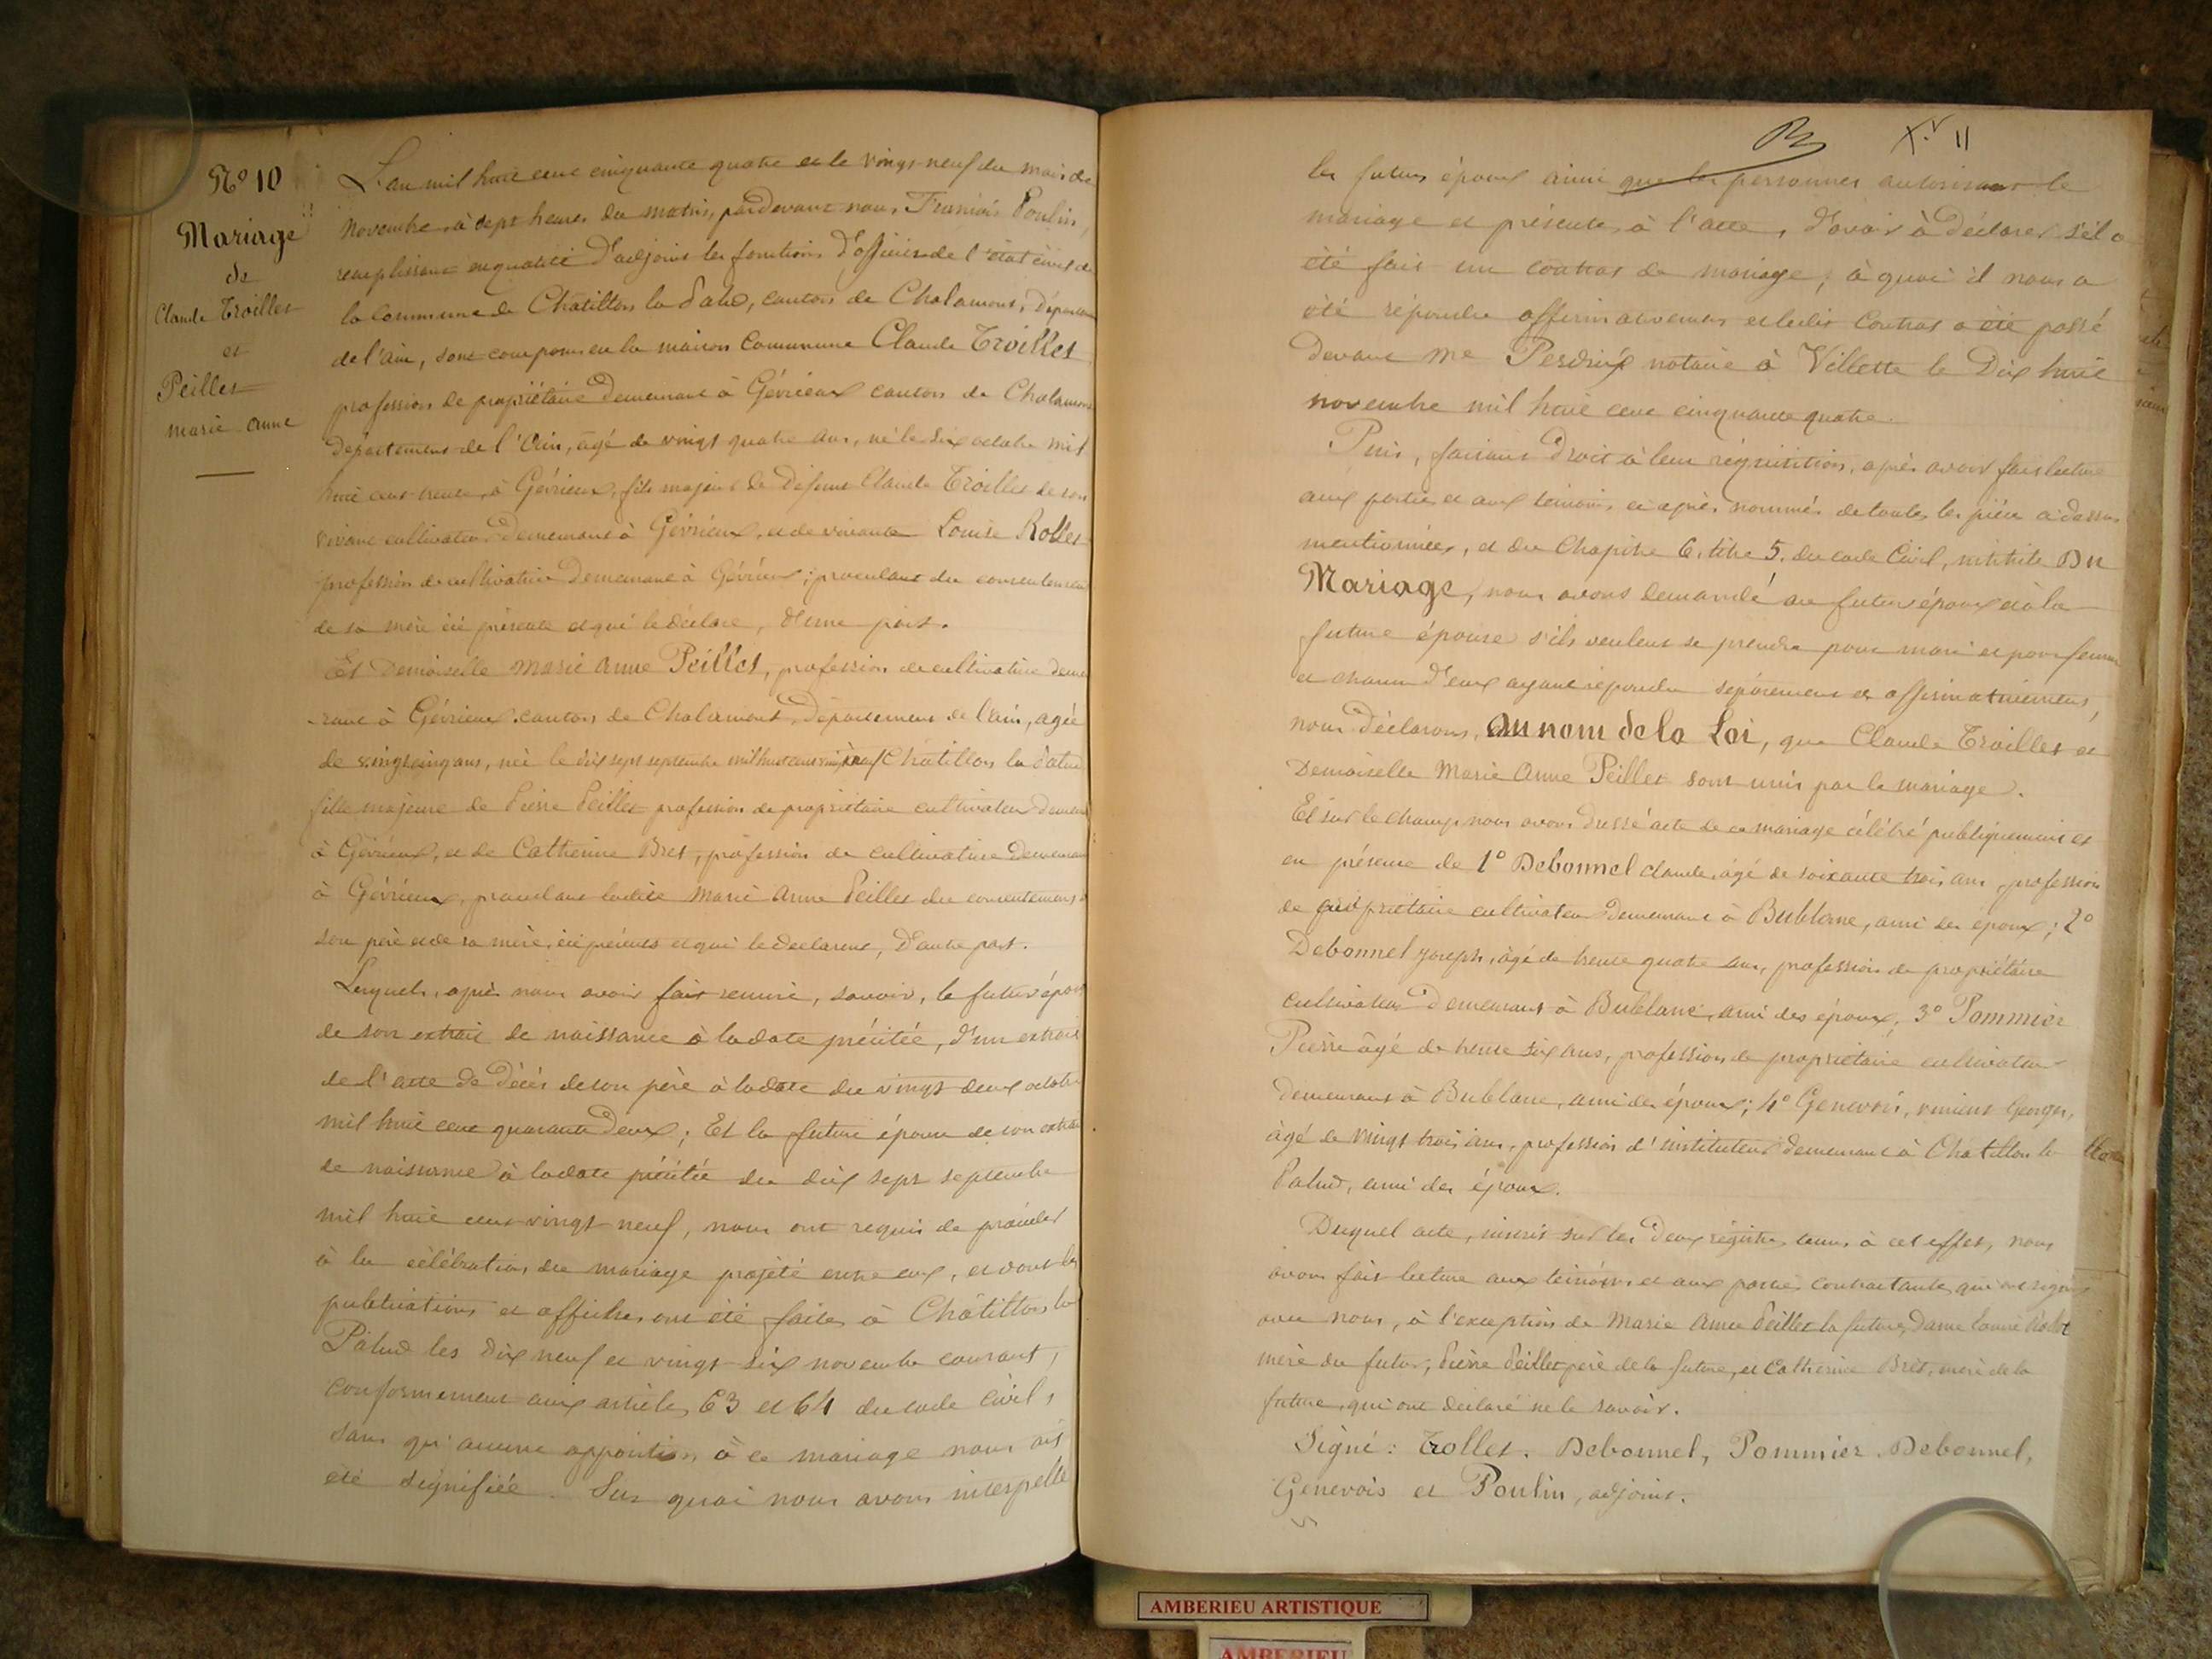 N° 10
Mariage
de
Claude Troillet
et
Peillet
marie anne
L'an mil huit cent cinquante quatre et le vingt-neuf du mois de
Novembre, à sept heures du matin, pardevant nous, François Poulin,
remplissant en qualité d'adjoint les fonctions d'officier de l'état civil de
la Commune de Châtillon la Palud, canton de Chalamont, Départem
de l'ain, sont comparus en la maison Commune Claude Troillet
profession de propriétaire Demeurant à Gévrieux canton de Chalamont
Département de l'Ain, âgé de vingt quatre ans, né le six octobre mil
huit cent trente, à Gévrieux, fils majeur de défunt Claude Troillet de son
vivant cultivateur Demeurant à Gévrieux, et de vivante Louise Rollet
profession de cultivatrice Demeurant à Gévrieux; procedant du consentement
de sa mère ici présente et qui le déclare, d'une part.
Et Demoiselle Marie Anne Peillet, profession de cultivatrice deme
-rant à Gévrieux canton de Chalamont, Département de l'ain, agée
de vingt cinq ans, née le dix sept septembre mil huit cent vingt neuf Châtillon la Palud
fille majeure de Pierre Peillet profession de propriétaire cultivateur Demeurant
à Gévrieux, et de Catherine Bret, profession de cultivatrice Demeurant
à Gévrieux, procedant ladite Marie Anne Peillet du consentement d
son père et de sa mère, ici présents et qui le declarent, D'autre part.
Lesquels, après nous avoir fait remise, savoir, le futur époux
de son extrait de naissance à la date précitée, d'un extrait
de l'acte de Décès de son père à la date du vingt deux octobre
mil huit cent quarante Deux; Et la future épouse de son extrait
de naissance à la date précitée du dix sept septembre
mil huit cent vingt neuf, nous ont requis de procéder
à la célébration du mariage projeté entre eux, et dont les
publications et affiches ont été faites à Châtillon la
Palud les dix neuf et vingt-six novembre courant,
conformement aux articles 63 et 64 du code civil,
sans qu'aucune opposition à ce mariage nous ait
été signifiée. Sur quoi nous avons interpellé
11
les futurs époux ainsi que les personnes autorisant le
mariage et présentes à l'acte, d'avoir à Déclarer s'il a
été fait un contrat de mariage; à quoi il nous a
été répondu affirmativement et ledit Contrat a été passé
Devant Me Perdrix notaire à Villette le Dix huit
novembre mil huit cent cinquante quatre.
Puis, faisant Droit à leur réquisition, après avoir fait lecture
aux parties et aux témoins ci après nommés de toutes les pièces ci dessus
mentionnées, et du Chapitre 6. titre 5. du code Civil, intitulé Du
Mariage, nous avons demandé au futur époux et à la
future épouse s'ils veulent se prendre pour mari et pour femme
et chacun d'eux ayant répondu séparément et affirmativement,
nous Déclarons, au nom de la Loi, que Claude Troillet et
Demoiselle Marie Anne Peillet sont unis par le mariage.
Et sur le champ nous avons dressé acte de ce mariage célébré publiquement et
en présence de 1° Debonnel claude, âgé de soixante trois ans, profession
de propriétaire cultivateur Demeurant à Bublane, ami des époux; 2°
Debonnel Joseph, âgé de trente quatre ans, profession de propriétaire
cultivateur Demeurant à Bublane, ami des époux, 3° Pommier
Pierre âgé de trente six ans, profession de propriétaire cultivateur
Demeurant à Bublane, ami des époux; 4° Genevois, vincent Georges,
âgé de vingt trois ans, profession d'instituteur demeurant à Chatillon la
Palud, ami des époux.
Duquel acte, inscrit sur les Deux registres tenus à cet effet, nous
avons fait lecture aux témoins et aux parties contractantes qui ont signé
avec nous, à l'exception de Marie Anne Peillet la future, dame Louise Rollet
mère du futur, Pierre Peillet père de la future, et Catherine Bret, mère de la
future, qui ont déclaré ne le savoir.
Signé: Trollet. Debonnel, Pommier. Debonnel,
Genevois et Poulin, adjoint.
AMBERIEU ARTISTIQUE
AMBERIEU